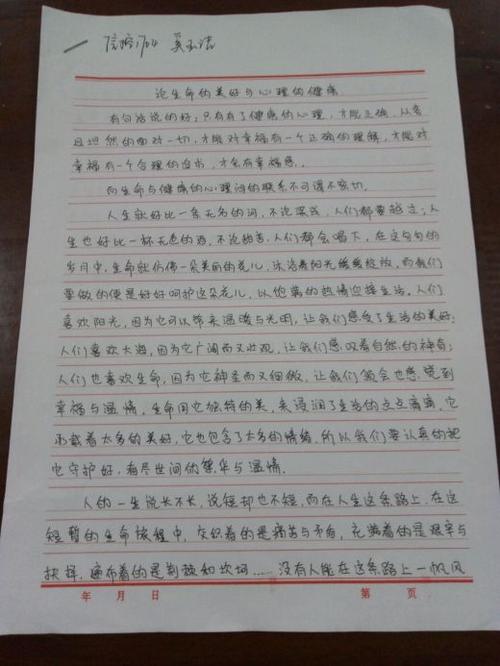 信榕1704 吴玉洁
论生命的美好与心理的健康
有句话说的好:只有有了健康的心理,才能正确、从容
且坦然的面对一切,才能对幸福有一个正确的理解,才能对
幸福有一个合理的追求,才会有幸福感。
而生命与健康的心理间的联系不可谓不密切。
人生就好比一条无名的河,不论深浅,人们都要越过;人
生也好比一杯无色的酒,不论甜苦,人们都会喝下,在这匆匆的
岁月中,生命就仿佛一朵美丽的花儿,沐浴着阳光缓缓绽放,而我们
要做的便是好好呵护这朵花儿,以饱满的热情迎接生活。人们
喜欢阳光,因为它可以带来温暖与光明,让我们感受了生活的美好;
人们喜欢大海,因为它广阔而又壮观,让我们感叹着自然的神奇;
人们也喜欢生命,因为它神圣而又细微,让我们领会也感觉到
幸福与温情,生命用它独特的美,来浸润了生活的点点滴滴,它
承载着太多的美好,它也包含了太多的情绪,所以我们要认真的把
它守护好,看尽世间的繁华与温情。
人的一生说长不长,说短却也不短,而在人生这条路上,在这
短暂的生命旅程中,交织着的是痛苦与矛盾,充满着的是艰辛与
抉择,遍布着的是荆棘和坎坷……没有人能在这条路上一帆风
年 月 日 第 页